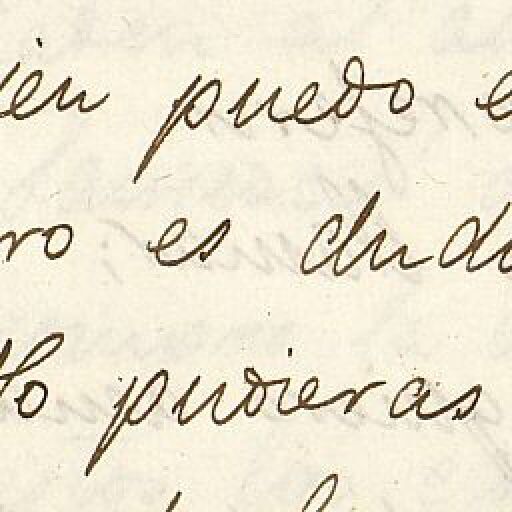 ien puedo e
ro es dudo
lo pudieras